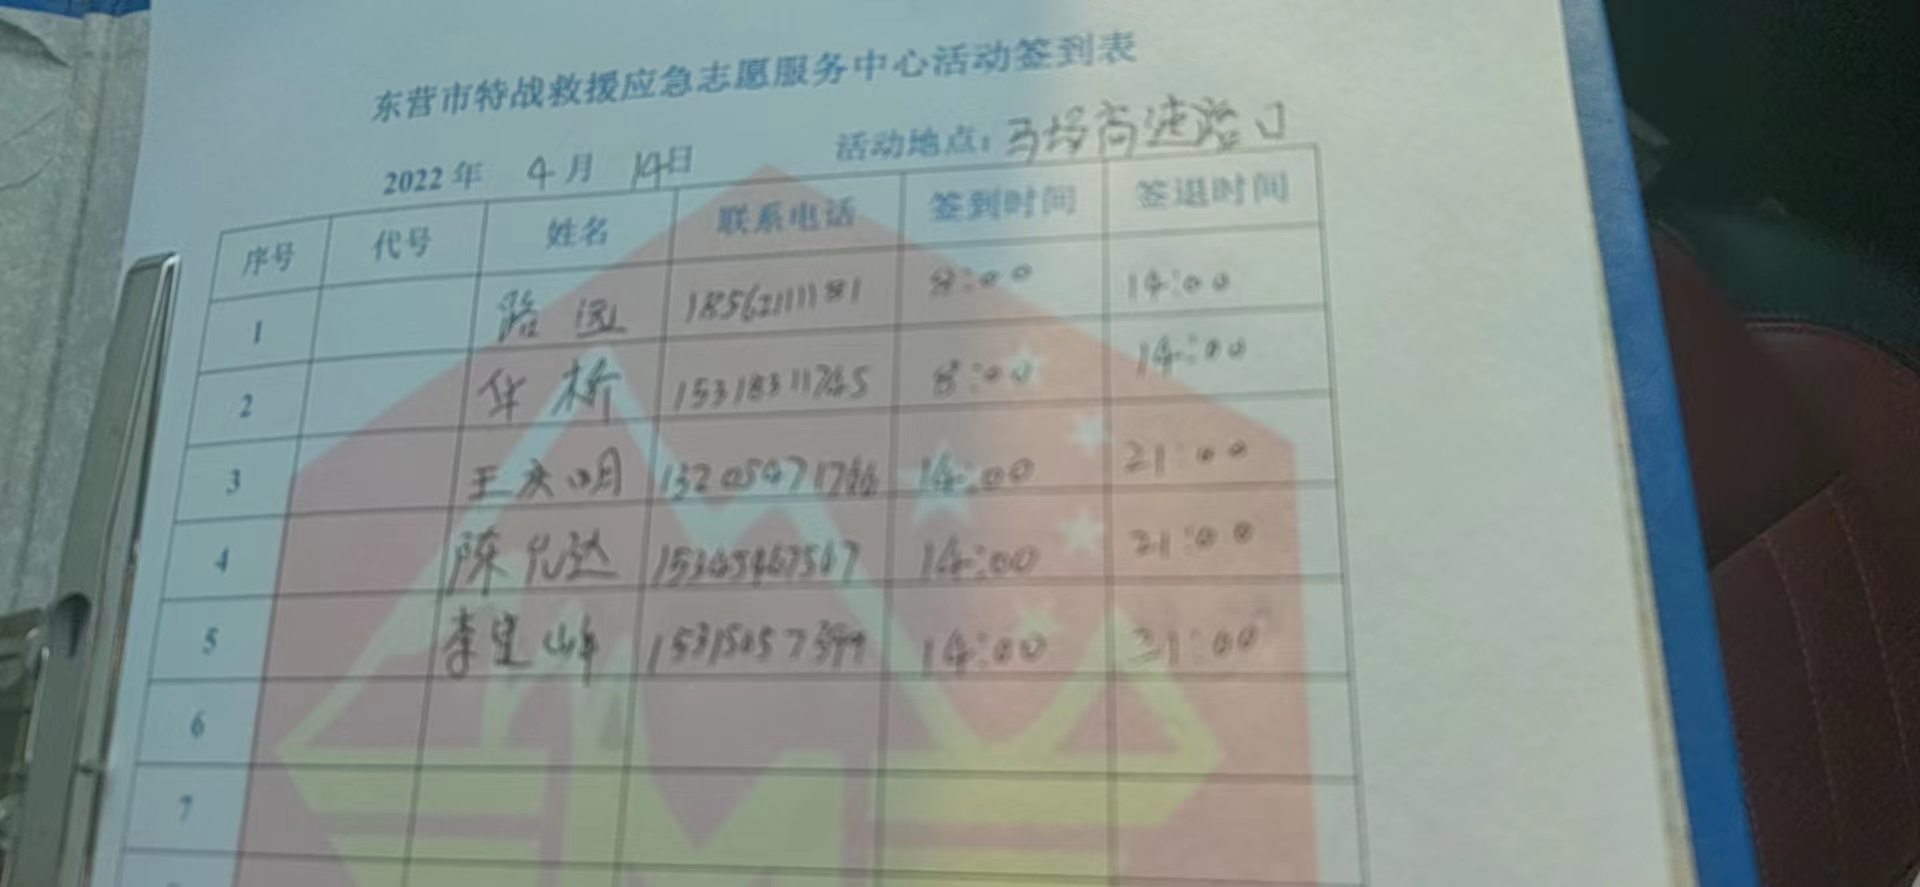 东营市特战救援应急志愿服务中心活动签到表
2022年 4月 14日 活动地点：马场高速路口
序号 代号 姓名 联系电话 签到时间 签退时间
1 路 18562111181 8:00 14:00
2 华桥 15318311765 8:00 14:00
3 王庆明 14:00 21:00
4 陈允达 14:00 21:00
5 李宝峰 14:00 21:00
6
7